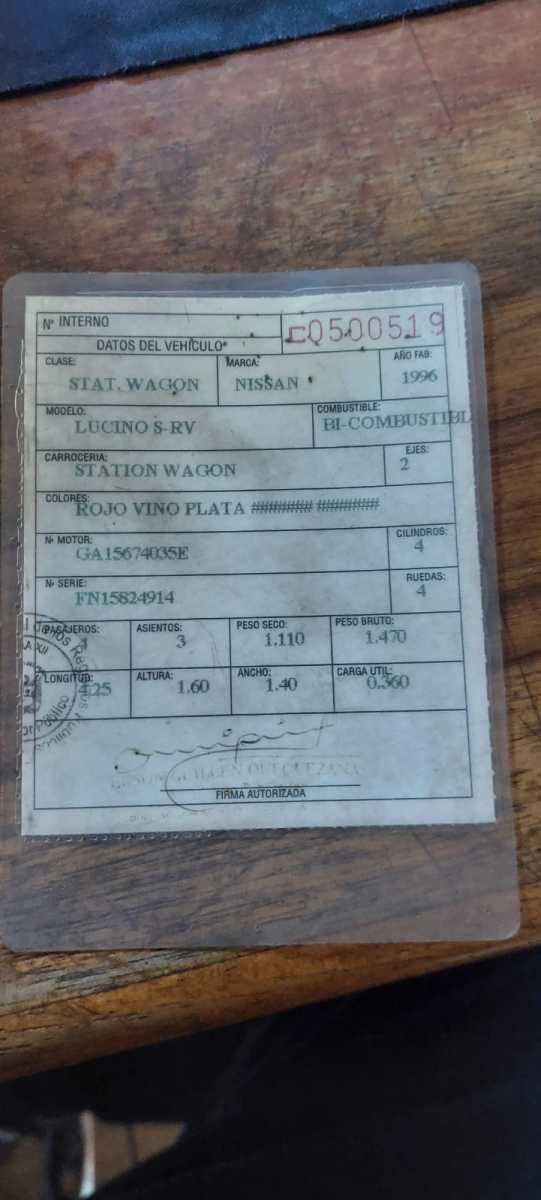 Nº INTERNO
C0500519
DATOS DEL VEHICULO
CLASE:
STAT. WAGON
MARCA:
NISSAN
AÑO FAB:
1996
MODELO:
LUCINO S-RV
COMBUSTIBLE:
BI-COMBUSTIBL
CARROCERIA:
STATION WAGON
EJES:
2
COLORES:
ROJO VINO PLATA ####### #######
Nº MOTOR:
GA15674035E
CILINDROS:
4
Nº SERIE:
FN15824914
RUEDAS:
4
PASAJEROS:
ASIENTOS:
3
PESO SECO:
1.110
PESO BRUTO:
1.470
LONGITUD:
4.25
ALTURA:
1.60
ANCHO:
1.40
CARGA UTIL:
0.360
FIRMA AUTORIZADA